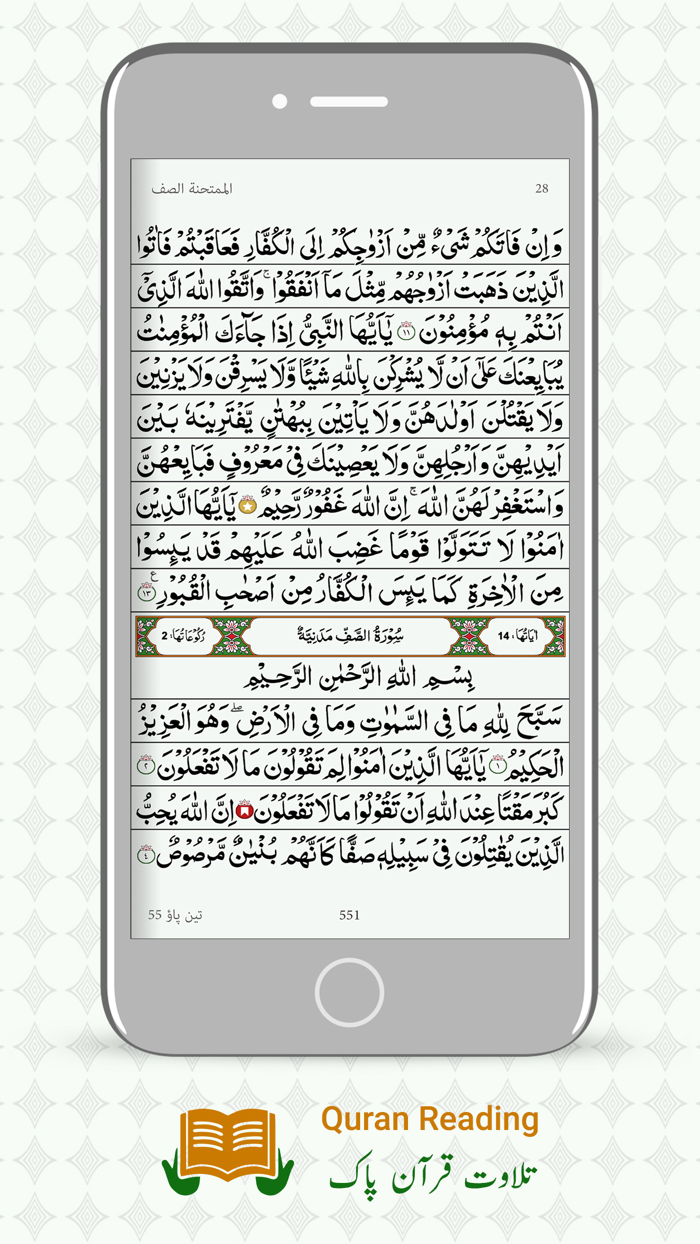 الممتحنة الصف 28
وَاِنْ فَاتَكُمْ شَیْءٌ مِّنْ اَزْوٰجِكُمْ اِلَى الْكُفَّارِ فَعَاقَبْتُمْ فَاٰتُوا
الَّذِیْنَ ذَهَبَتْ اَزْوٰجُهُمْ مِّثْلَ مَاۤ اَنْفَقُوْا ۚ وَاتَّقُوا اللّٰهَ الَّذِیْۤ
اَنْتُمْ بِهٖ مُؤْمِنُوْنَ ١١ یٰۤاَیُّهَا النَّبِیُّ اِذَا جَآءَكَ الْمُؤْمِنٰتُ
یُبَایِعْنَكَ عَلٰۤى اَنْ لَّا یُشْرِكْنَ بِاللّٰهِ شَیْـًٔا وَّلَا یَسْرِقْنَ وَلَا یَزْنِیْنَ
وَلَا یَقْتُلْنَ اَوْلٰدَهُنَّ وَلَا یَاْتِیْنَ بِبُهْتٰنٍ یَّفْتَرِیْنَهٗ بَیْنَ
اَیْدِیْهِنَّ وَاَرْجُلِهِنَّ وَلَا یَعْصِیْنَكَ فِیْ مَعْرُوْفٍ فَبَایِعْهُنَّ
وَاسْتَغْفِرْ لَهُنَّ اللّٰهَ ۚ اِنَّ اللّٰهَ غَفُوْرٌ رَّحِیْمٌ یٰۤاَیُّهَا الَّذِیْنَ
اٰمَنُوْا لَا تَتَوَلَّوْا قَوْمًا غَضِبَ اللّٰهُ عَلَیْهِمْ قَدْ یَىِٕسُوْا
مِنَ الْاٰخِرَةِ كَمَا یَىِٕسَ الْكُفَّارُ مِنْ اَصْحٰبِ الْقُبُوْرِ ع ١٣
اٰیَاتُهَا: 14 سُوْرَةُ الصَّفِّ مَدَنِیَّةٌ رُكُوْعَاتُهَا: 2
بِسْمِ اللّٰهِ الرَّحْمٰنِ الرَّحِیْمِ
سَبَّحَ لِلّٰهِ مَا فِی السَّمٰوٰتِ وَمَا فِی الْاَرْضِ ۖ وَهُوَ الْعَزِیْزُ
الْحَكِیْمُ ١ یٰۤاَیُّهَا الَّذِیْنَ اٰمَنُوْا لِمَ تَقُوْلُوْنَ مَا لَا تَفْعَلُوْنَ ٢
كَبُرَ مَقْتًا عِنْدَ اللّٰهِ اَنْ تَقُوْلُوْا مَا لَا تَفْعَلُوْنَ اِنَّ اللّٰهَ یُحِبُّ
الَّذِیْنَ یُقٰتِلُوْنَ فِیْ سَبِیْلِهٖ صَفًّا كَاَنَّهُمْ بُنْیٰنٌ مَّرْصُوْصٌ ٤
تین پاؤ 55 551
Quran Reading
تلاوت قرآن پاک